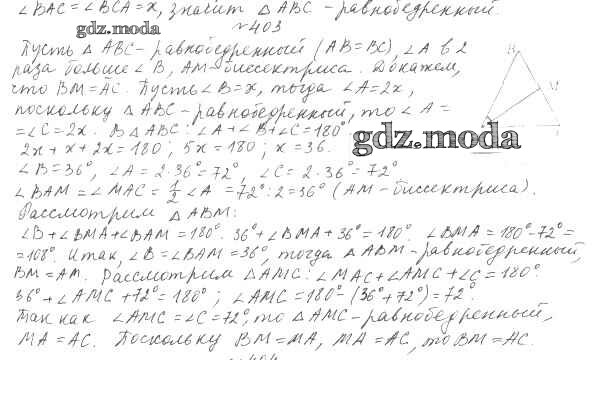 ∠BAC = ∠BCA = x, значит △ABC - равнобедренный.
№403
gdz.moda
Пусть △ABC - равнобедренный (AB=BC), ∠A в 2
раза больше ∠B, AM - биссектриса. Докажем,
что BM = AC. Пусть ∠B = x, тогда ∠A = 2x,
поскольку △ABC - равнобедренный, то ∠A =
= ∠C = 2x. В △ABC: ∠A + ∠B + ∠C = 180°
2x + x + 2x = 180; 5x = 180; x = 36.
gdz.moda
∠B = 36°, ∠A = 2·36° = 72°, ∠C = 2·36° = 72°
∠BAM = ∠MAC = 1/2 ∠A = 72°:2 = 36° (AM - биссектриса).
Рассмотрим △ABM:
∠B + ∠BMA + ∠BAM = 180°. 36° + ∠BMA + 36° = 180°. ∠BMA = 180° - 72° =
= 108°. Итак, ∠B = ∠BAM = 36°, тогда △ABM - равнобедренный,
BM = AM. Рассмотрим △AMC: ∠MAC + ∠AMC + ∠C = 180°.
36° + ∠AMC + 72° = 180°; ∠AMC = 180° - (36° + 72°) = 72°.
Так как ∠AMC = ∠C = 72°, то △AMC - равнобедренный,
MA = AC. Поскольку BM = MA, MA = AC, то BM = AC.
B
M